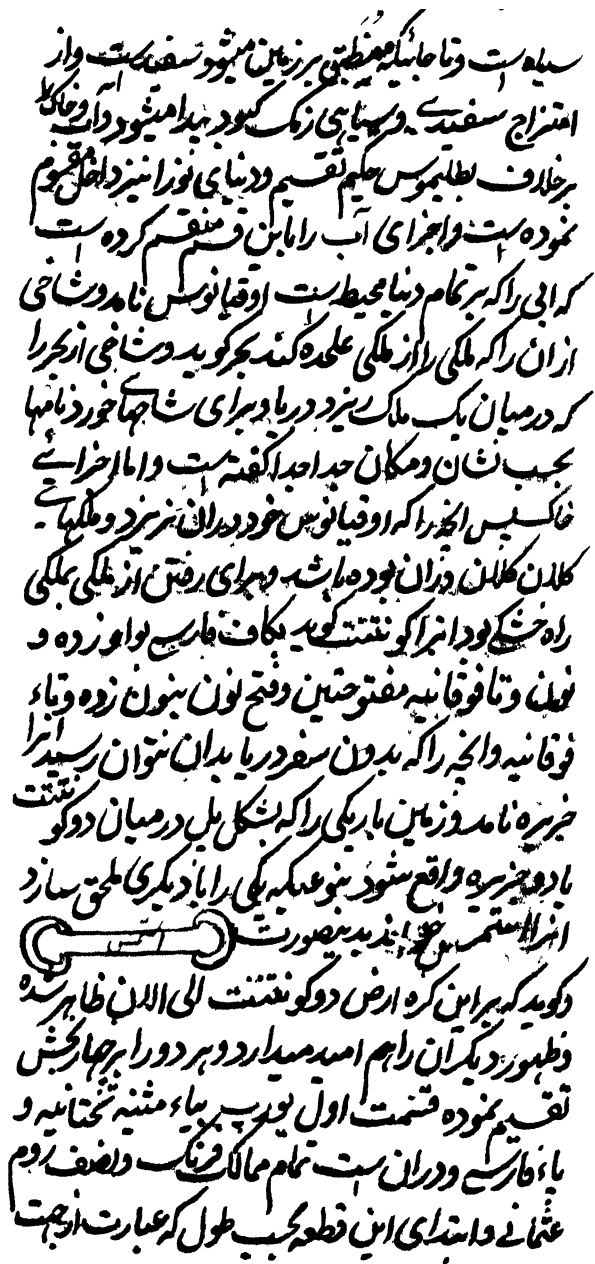 سیاه است و تا جائیکه منطبق بر زمین میشود سفید است و از
امتزاج سفیدی و سیاهی رنگ کبود پیدا میشود و آب و خاک را
برخلاف بطلیموس حکیم تقسیم و دنیای نو را نیز داخل مقسوم
نموده است و اجزای آب را باین قسم منقسم کرده است
که آبی را که بر تمام دنیا محیط است اوقیانوس نامد و شاخی
از آن را که ملکی را از ملکی علحده کند بحر کوید و شاخی از بحر را
که در میان یک ملک ریزد دریا و برای شاخهای خورد نامها
بحسب نشان و مکان جدا جدا کفته است و اما اجزای
خاک پس آنچه را که اوقیانوس خود در آن نریزد و ملکهای
کلان کلان در آن بوده باشد و برای رفتن از ملکی بملکی
راه خشکی بود آنرا کونتننت کوید بکاف فارسی بواو زده و
نون و تا فوقانیه مفتوحتین و فتح نون بنون زده و تاء
فوقانیه و آنچه را که بدون سفر دریا بدان نتوان رسید آنرا
جزیره نامد و زمین باریکی را که بشکل پل در میان دو کونتننت
یا دو جزیره واقع شود بنوعیکه یکی را با دیکری ملحق سازد
آنرا استمس خواند بدینصورت
و کوید که بر این کره ارض دو کونتننت الی الان ظاهر شده
و ظهور دیکران را هم امید میدارد و هر دو را بر چهار بخش
تقسیم نموده قسمت اول یورپ بیاء مثناة تحتانیه و
باء فارسی و در آن است تمام ممالک فرنک و نصف روم
عثمانی و ابتدای این قطعه بحسب طول که عبارت از جهت